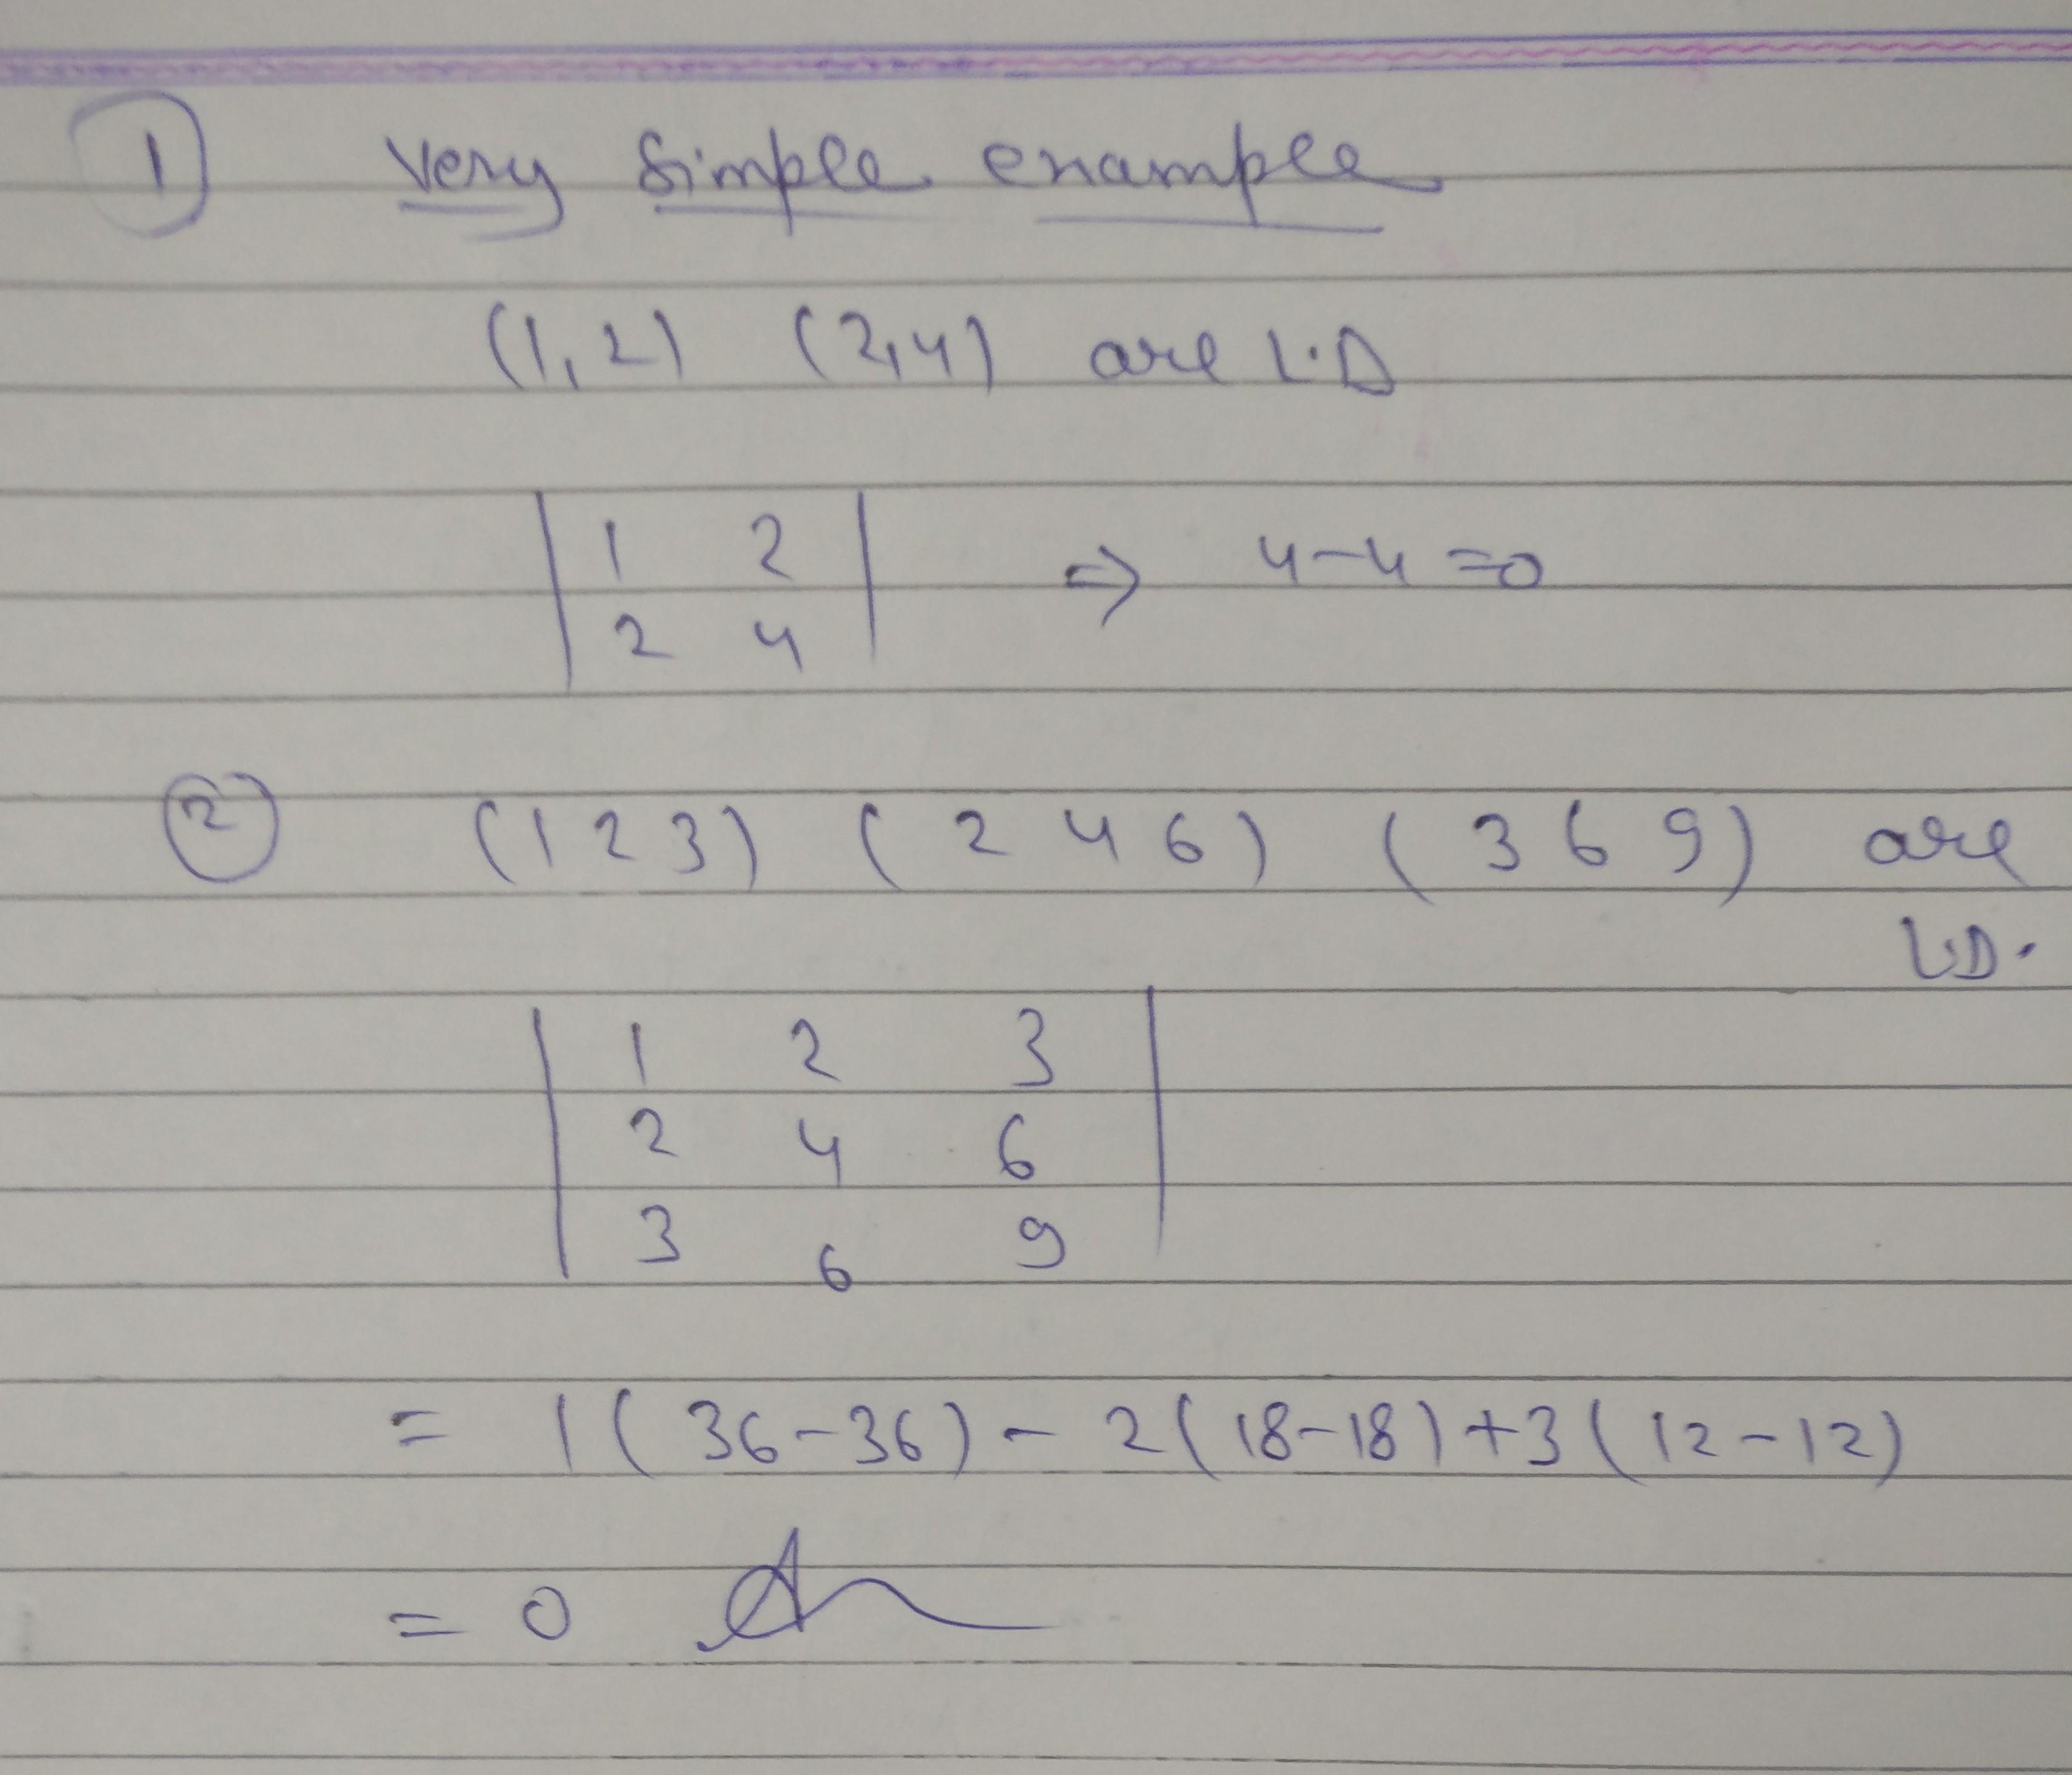 1 Very Simple example
(1,2) (2,4) are L.D
| 1 2 | ⇒ 4-4=0
| 2 4 |
2 (1 2 3) ( 2 4 6) ( 3 6 9) are
L.D.
| 1 2 3 |
| 2 4 6 |
| 3 6 9 |
= 1( 36-36) - 2( 18-18)+3( 12-12)
= 0